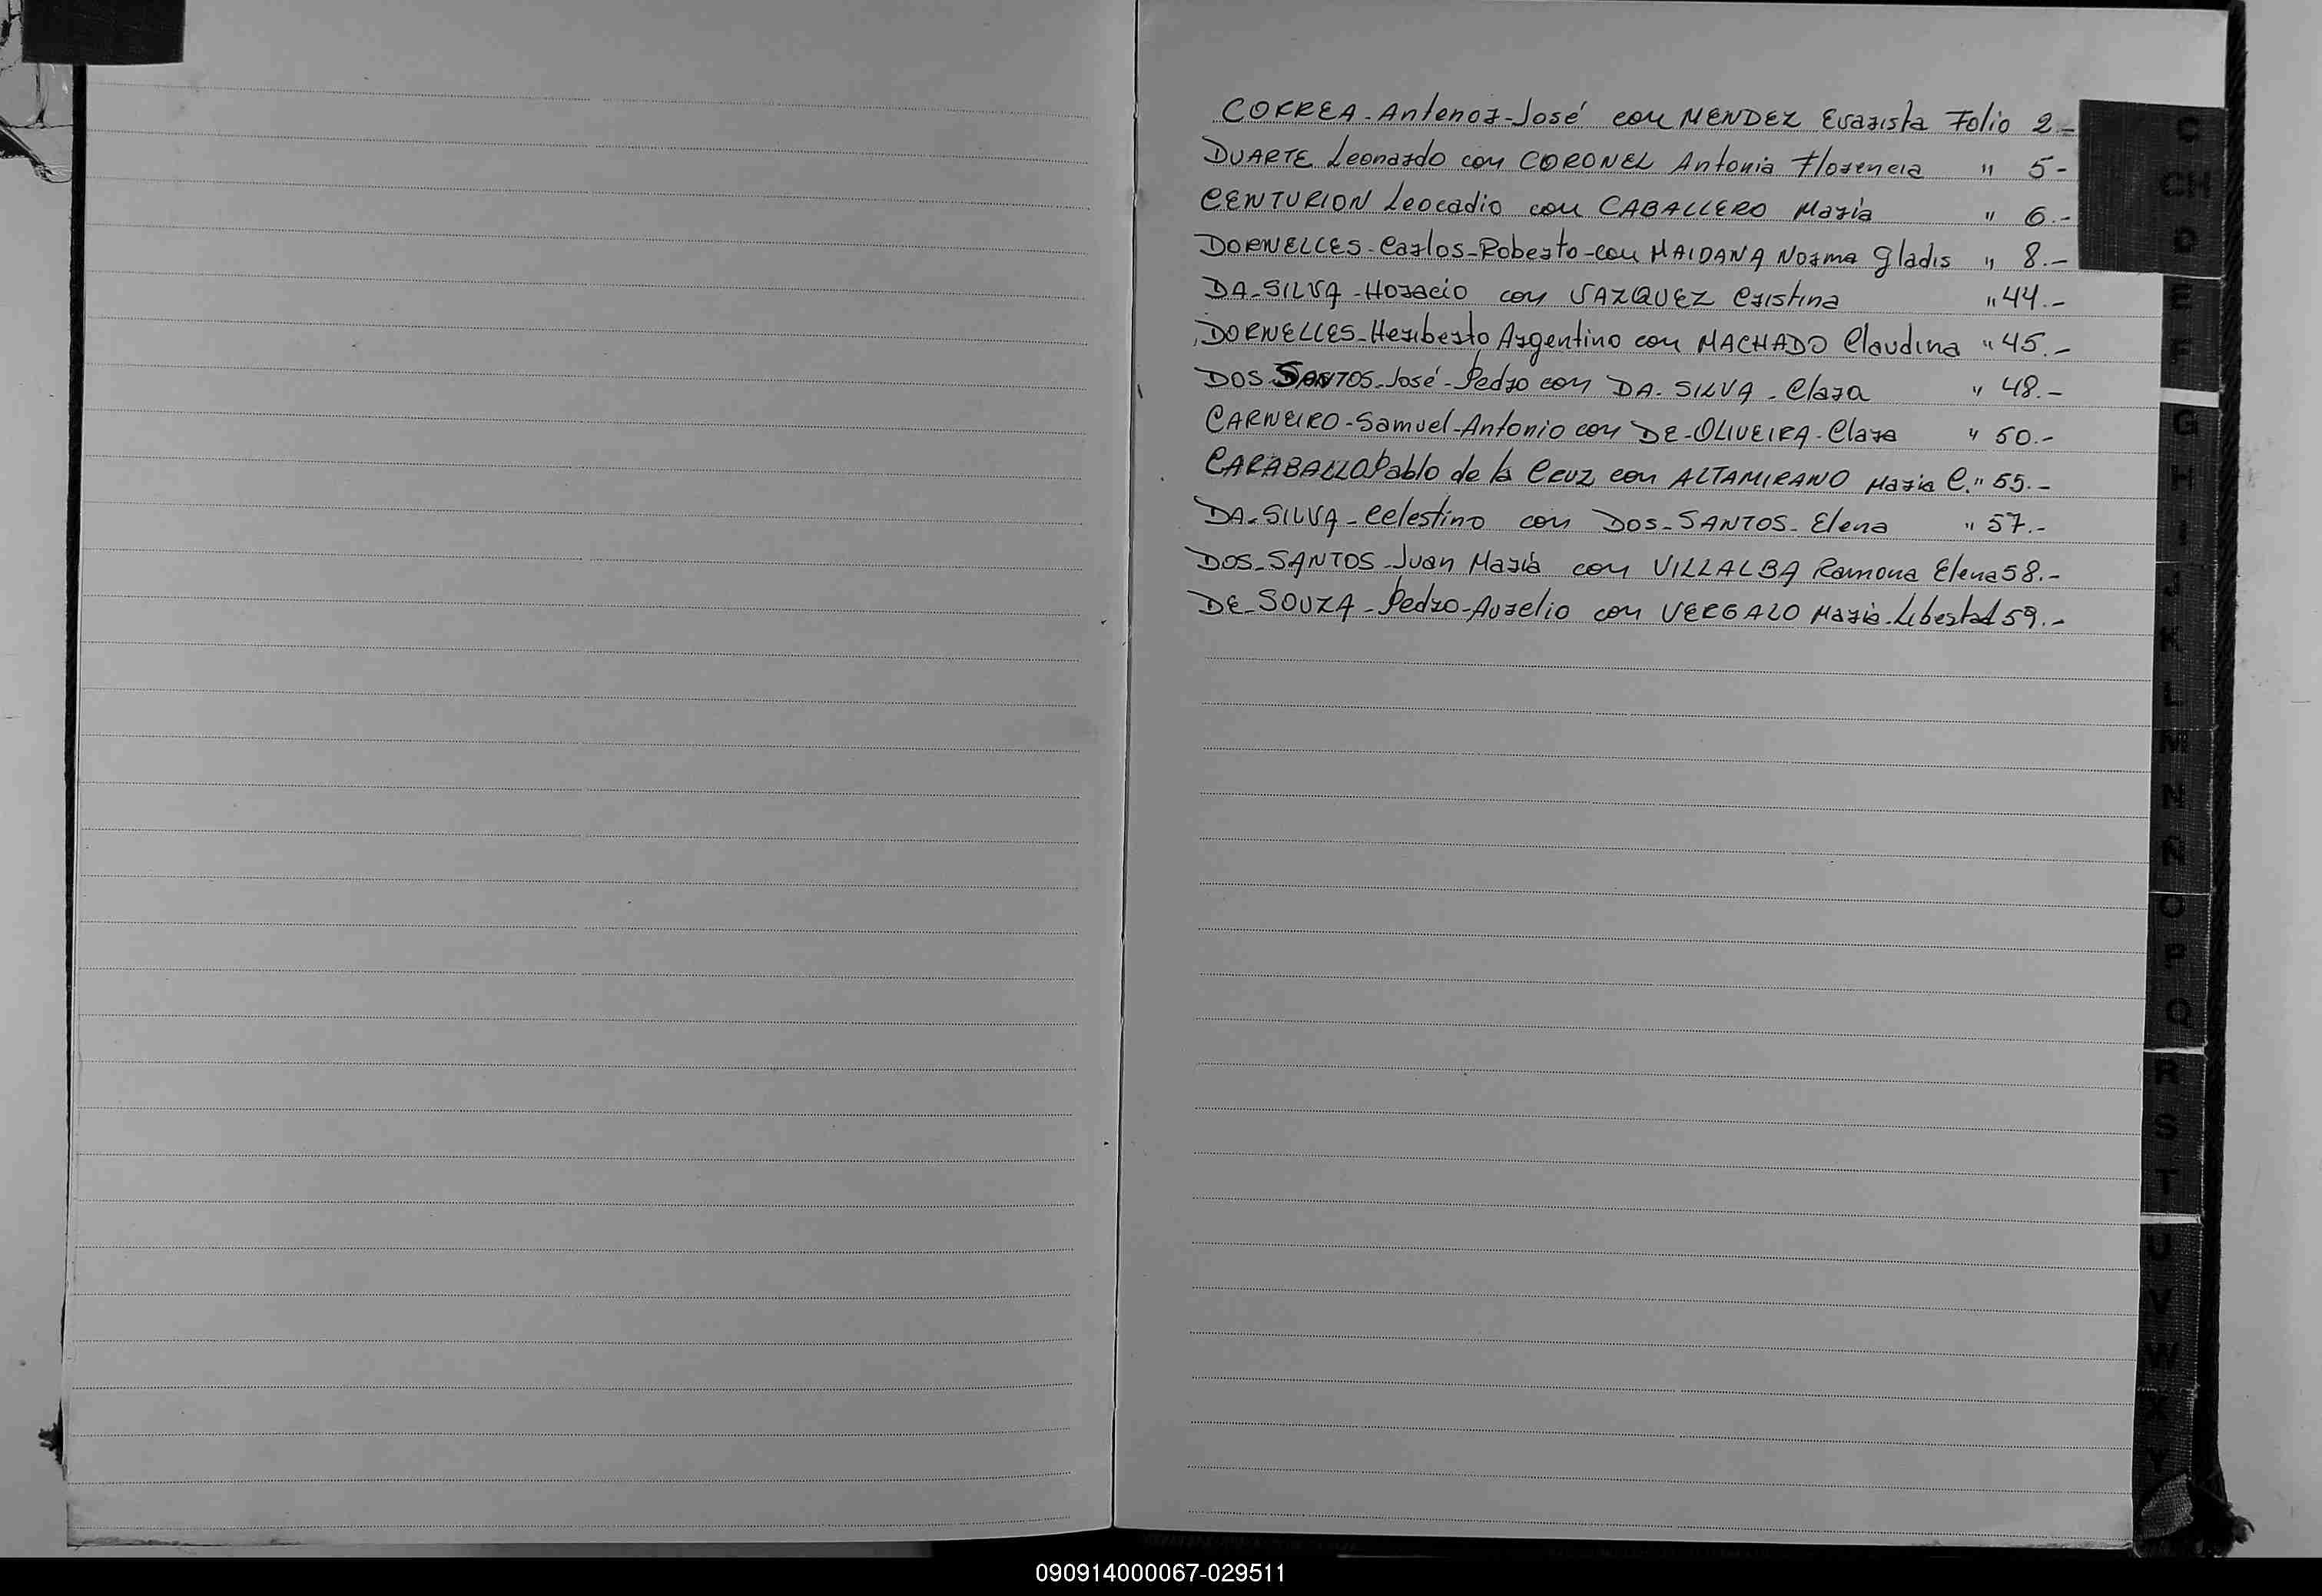 CORREA-Antenor-José con MENDEZ Evarista Folio 2.-
DUARTE Leonardo con CORONEL Antonia Florencia " 5-
CENTURION Leocadio con CABALLERO María " 6.-
DORNELLES-Carlos-Roberto-con MAIDANA Norma Gladis " 8.-
DA-SILVA-Horacio con VAZQUEZ Cristina " 44.-
DORNELLES-Heriberto Argentino con MACHADO Claudina " 45.-
DOS SANTOS-José-Pedro con DA-SILVA-Clara " 48.-
CARNEIRO-Samuel-Antonio con DE-OLIVEIRA-Clara " 50.-
CARABALLO Pablo de la Cruz con ALTAMIRANO María C. " 55.-
DA-SILVA-Celestino con DOS-SANTOS-Elena " 57.-
DOS-SANTOS-Juan María con VILLALBA Ramona Elena 58.-
DE-SOUZA-Pedro-Aurelio con VERGALO María-Libertad 59.-
C
CH
D
E
F
G
H
I
J
K
L
M
N
Ñ
O
P
Q
R
S
T
U
V
W
X
Y
090914000067-029511